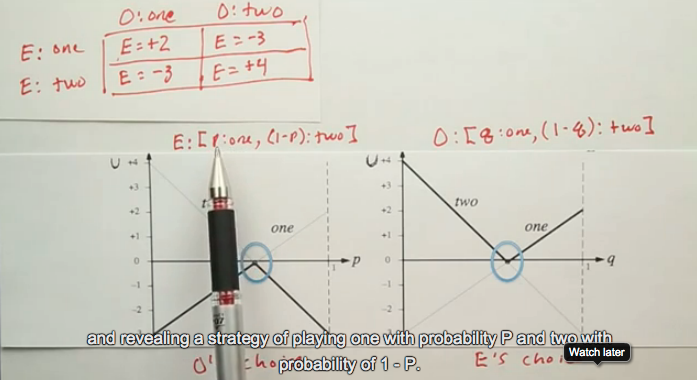 O: one O: two
E: one E=+2 E=-3
E: two E=-3 E=+4
E: [p: one, (1-p): two]
O: [q: one, (1-q): two]
U +4
+3
+2
+1
0
-1
-2
-3
one
1
p
U +4
+3
+2
+1
0
-1
-2
two
one
1
q
and revealing a strategy of playing one with probability P and two with
probability of 1 - P.
E's
Watch later